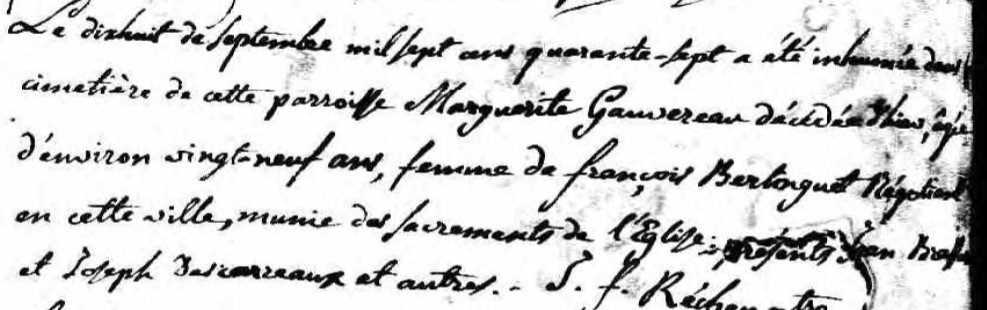 Le dixhuit de septembre mil sept cens quarante-sept a été inhumée dans l
cimetière de cette parroisse Marguerite Gauvereau décédée d'hier, âgée
d'environ vingt-neuf ans, femme de françois Berlonguet Négotiant
en cette ville, munie des sacremens de l'Eglise; présents Jean
et Joseph Descarreaux et autres.. J. f. Récher